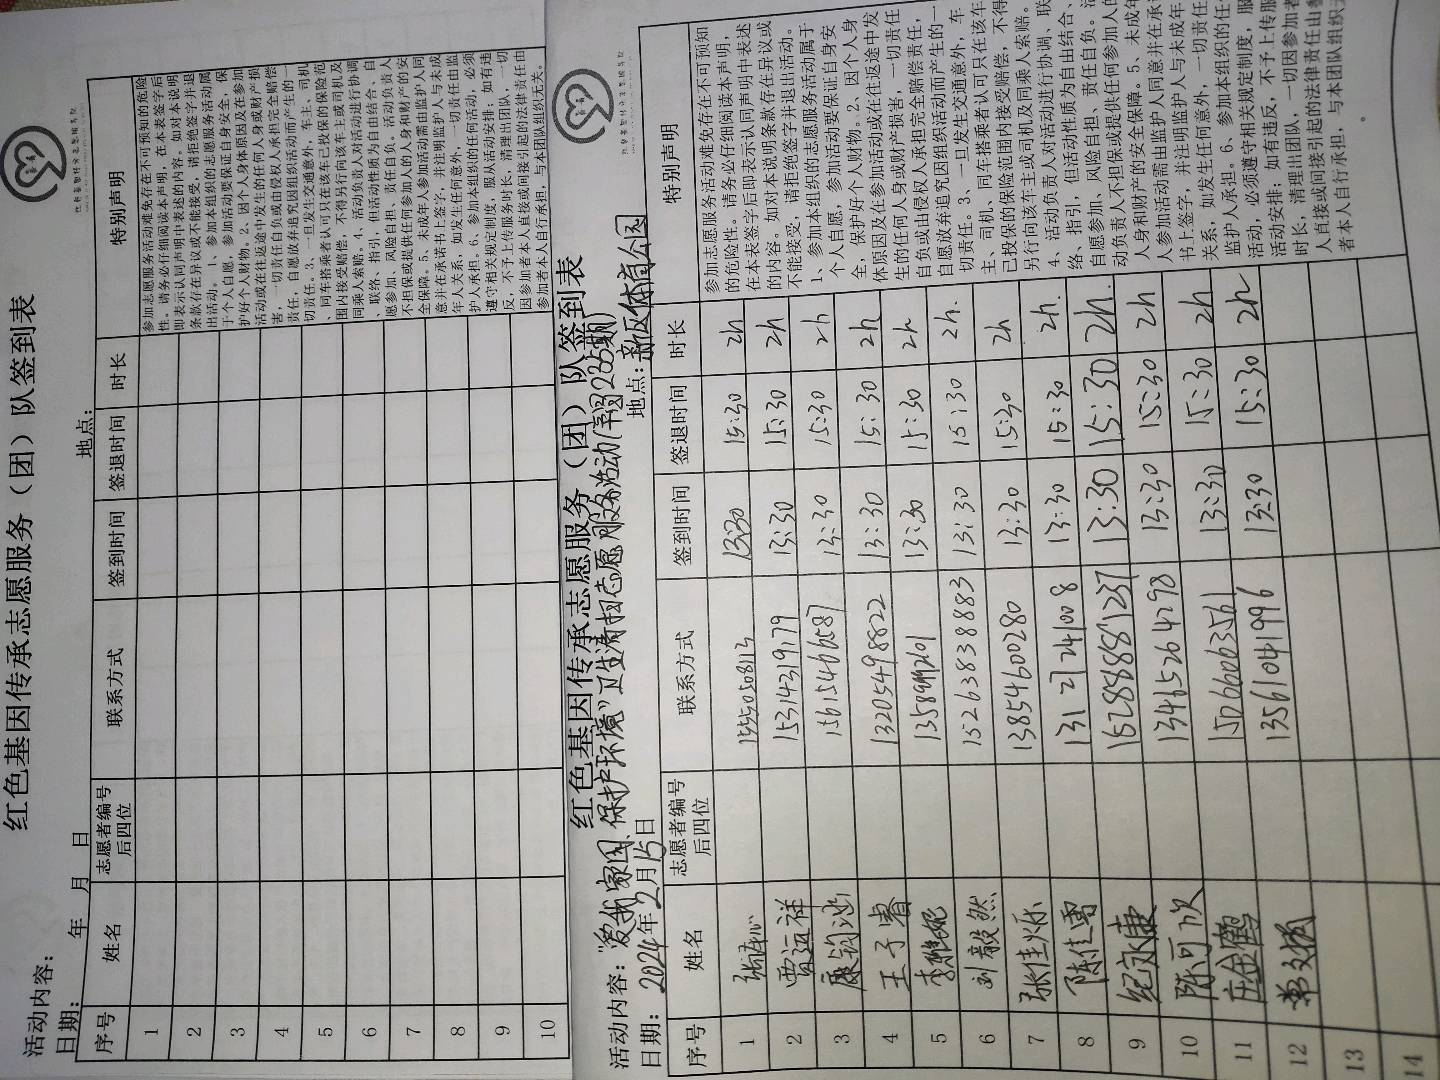 红色基因传承志愿服务（团）队签到表
活动内容：
日期： 年 月 日 地点：
序号 姓名 志愿者编号后四位 联系方式 签到时间 签退时间 时长 特别声明
1
2
3
4
5
6
7
8
9
10
参加志愿服务活动难免存在不可预知的危险
性。请务必仔细阅读本声明，在本表签字后
即表示认同声明中表述的内容。如对本说明
条款存在异议或不能接受，请拒绝签字并退
出活动。1、参加本组织的志愿服务活动属
于个人自愿，参加活动要保证自身安全，保
护好个人财物。2、因个人身体原因及在参加
活动或在往返途中发生的任何人身或财产损
害，一切责任自负或由侵权人承担完全赔偿
责任，自愿放弃追究因组织活动而产生的一
切责任。3、一旦发生交通意外，车主、司机
、同车搭乘者认可只在该车已投保的保险范
围内接受赔偿，不得另行向该车主或司机及
同乘人索赔。4、活动负责人对活动进行协调
、联络、指引，但活动性质为自由结合、自
愿参加、风险自担、责任自负。活动负责人
不担保或提供任何参加人的人身和财产的安
全保障。5、未成年人参加活动需由监护人同
意并在承诺书上签字，并注明监护人与未成
年人关系，如发生任何意外，一切责任由监
护人承担。6、参加本组织的任何活动，必须
遵守相关规定制度，服从活动安排；如有违
反，不予上传服务时长，清理出团队，一切
因参加者本人直接或间接引起的法律责任由
参加者本人自行承担，与本团队组织无关。
红色基因传承志愿服务（团）队签到表
活动内容：“爱我家园、保护环境”卫生清扫志愿服务活动(第235期)
日期：2024年2月15日 地点：新区体育公园
序号 姓名 志愿者编号后四位 联系方式 签到时间 签退时间 时长 特别声明
1 13:30 15:30 2h
2 贾远祥 15314319779 13:30 15:30 2h
3 13:30 15:30 2h
4 王子睿 13205498822 13:30 15:30 2h
5 李雅妮 13:30 15:30 2h
6 刘毅然 15263838883 13:30 15:30 2h.
7 张佳烁 13854600280 13:30 15:30 2h
8 陈佳雷 13121241008 13:30 15:30 2h.
9 纪永康 15288887237 13:30 15:30 2h.
10 陈可欣 13465264298 13:30 15:30 2h
11 庄金鹤 15066063561 13:30 15:30 2h
12 13561041996 13:30 15:30 2h
13
14
参加志愿服务活动难免存在不可预知
的危险性。请务必仔细阅读本声明，
在本表签字后即表示认同声明中表述
的内容。如对本说明条款存在异议或
不能接受，请拒绝签字并退出活动。
1、参加本组织的志愿服务活动属于
个人自愿，参加活动要保证自身安
全，保护好个人财物。2、因个人身
体原因及在参加活动或在往返途中发
生的任何人身或财产损害，一切责任
自负或由侵权人承担完全赔偿责任，
自愿放弃追究因组织活动而产生的一
切责任。3、一旦发生交通意外，车
主、司机、同车搭乘者认可只在该车
已投保的保险范围内接受赔偿，不得
另行向该车主或司机及同乘人索赔。
4、活动负责人对活动进行协调、联
络、指引，但活动性质为自由结合、
自愿参加、风险自担、责任自负。活
动负责人不担保或提供任何参加人的
人身和财产的安全保障。5、未成年
人参加活动需由监护人同意并在承诺
书上签字，并注明监护人与未成年
关系，如发生任何意外，一切责任
监护人承担。6、参加本组织的任
活动，必须遵守相关规定制度，服
活动安排；如有违反，不予上传服
时长，清理出团队，一切因参加者
人直接或间接引起的法律责任由参
者本人自行承担，与本团队组织
。